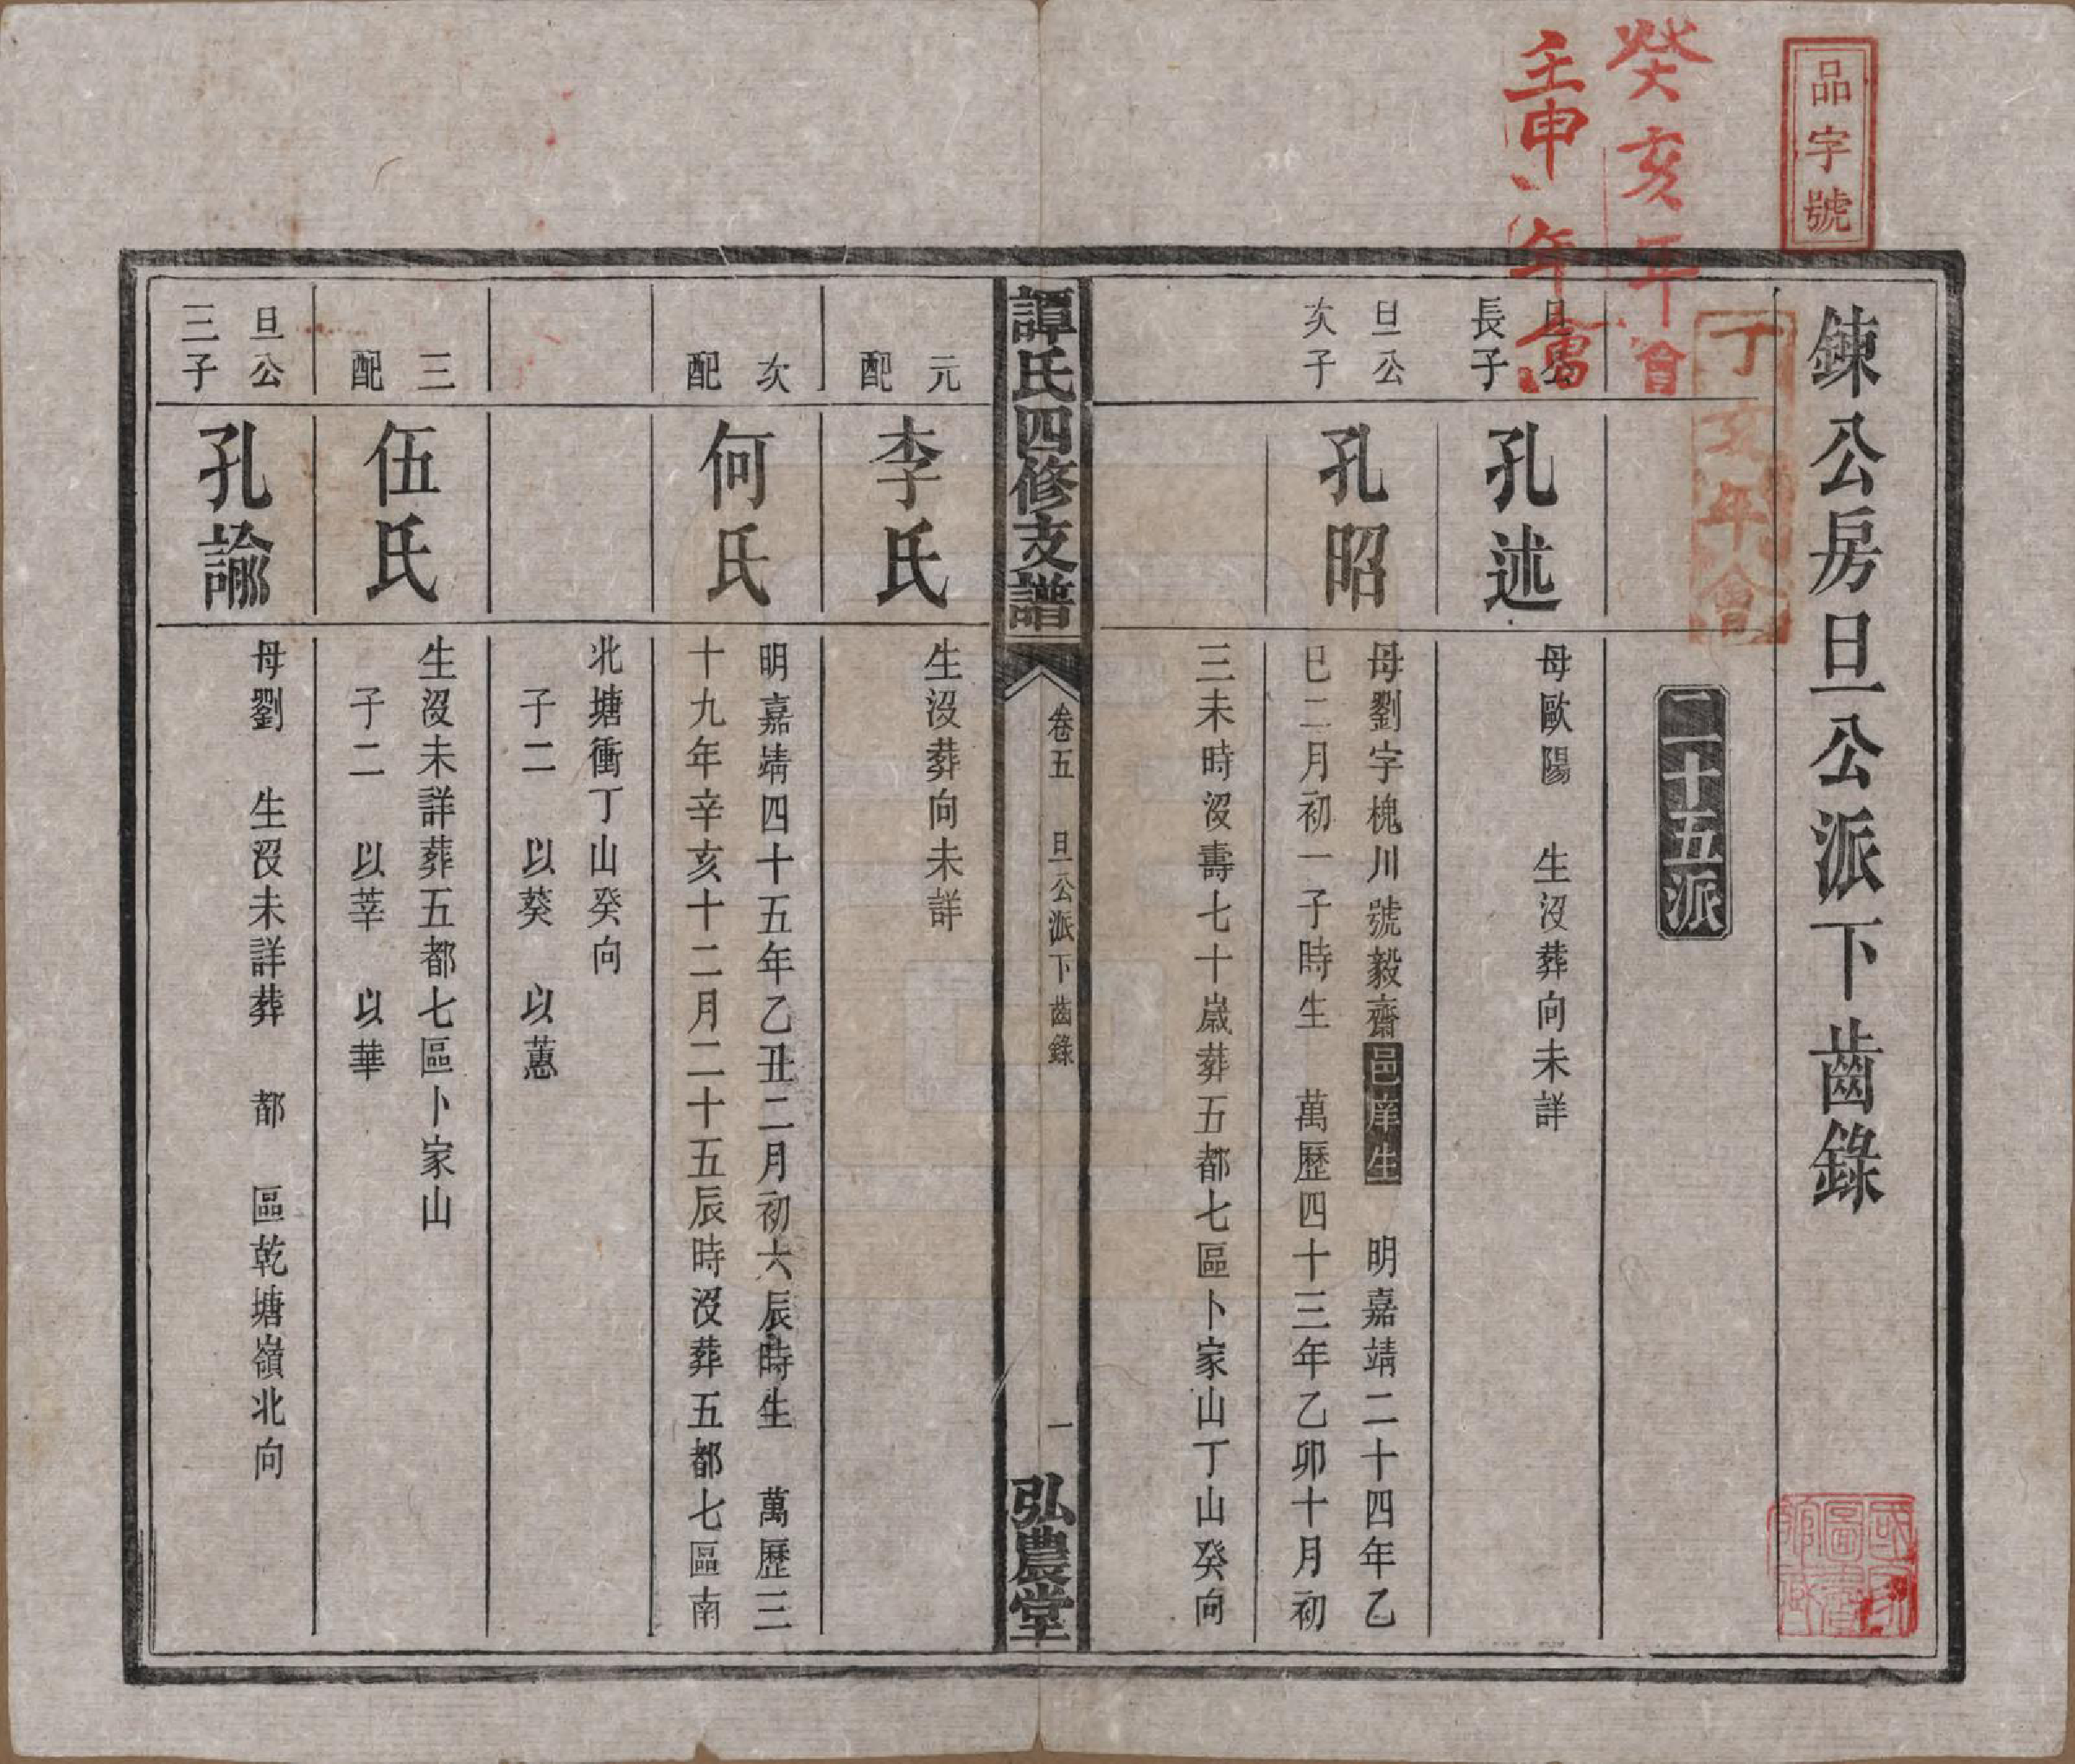 品字號
癸亥年會
壬申年會
丁亥年會
鍊公房旦公派下齒錄
二十五派
旦公
長子
孔述
母歐陽 生沒葬向未詳
旦公
次子
孔昭
母劉字槐川號毅齋邑庠生 明嘉靖二十四年乙
巳二月初一子時生 萬歷四十三年乙卯十月初
三未時沒壽七十歲葬五都七區卜家山丁山癸向
譚氏四修支譜
卷五 旦公派下齒錄
一
弘農堂
元
配
李氏
生沒葬向未詳
次
配
何氏
明嘉靖四十五年乙丑二月初六辰時生 萬歷三
十九年辛亥十二月二十五辰時沒葬五都七區南
北塘衝丁山癸向
子二 以葵 以蕙
三
配
伍氏
生沒未詳葬五都七區卜家山
子二 以莘 以華
旦公
三子
孔諭
母劉 生沒未詳葬 都 區乾塘嶺北向